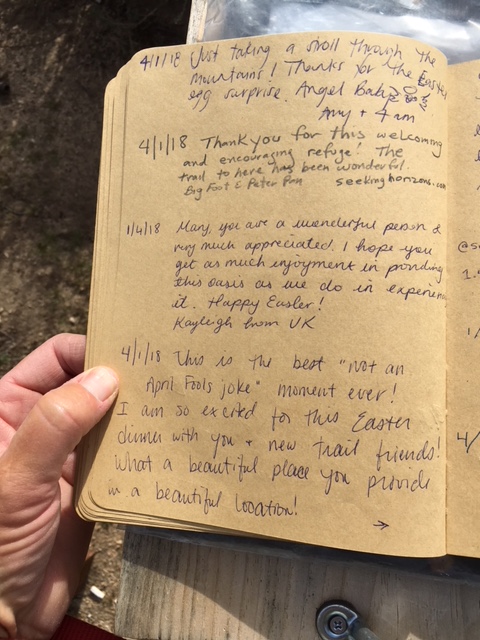 4/1/18 Just taking a stroll through the
mountains! Thanks for the Easter
egg surprise. Angel Baby
Amy + 4am
4/1/18 Thank you for this welcoming
and encouraging refuge! The
trail to here has been wonderful.
Big Foot & Peter Pan seekinghorizons.com
1/4/18 Mary, you are a wonderful person &
very much appreciated. I hope you
get as much enjoyment in providing
this oasis as we do in experiencing
it. Happy Easter!
Kayleigh from UK
4/1/18 This is the best "not an
April Fools joke" moment ever!
I am so excited for this Easter
dinner with you + new trail friends!
What a beautiful place you provide
in a beautiful location!
→